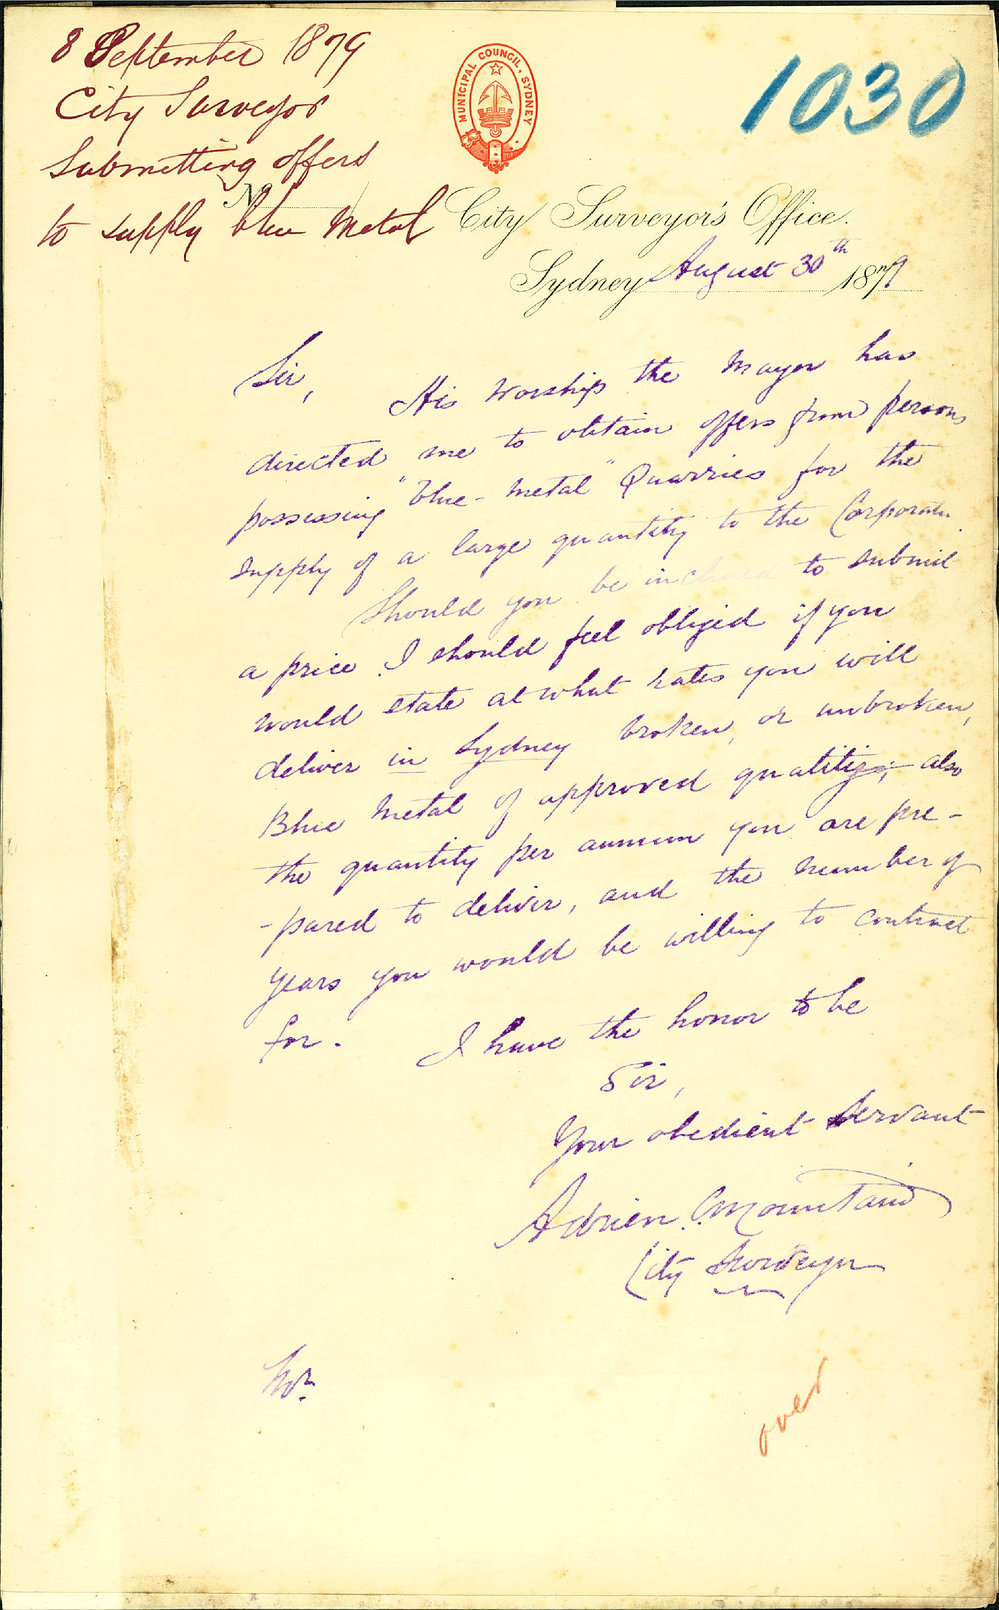 8 September 1879
City Surveyor
Submitting offers
to supply blue Metal
MUNICIPAL COUNCIL. SYDNEY
1030
No
City Surveyor's Office.
Sydney August 30th 1879
Sir,
His Worship the Mayor has
directed me to obtain offers from persons
possessing "blue-metal" Quarries for the
supply of a large quantity to the Corporation.
Should you be inclined to submit
a price I should feel obliged if you
would state at what rates you will
deliver in Sydney broken, or unbroken,
Blue Metal of approved quality; also
the quantity per annum you are pre-
-pared to deliver, and the number of
years you would be willing to contract
for.
I have the honor to be
Sir,
Your obedient Servant
Adrien C Mountain
City Surveyor
Mr.
over